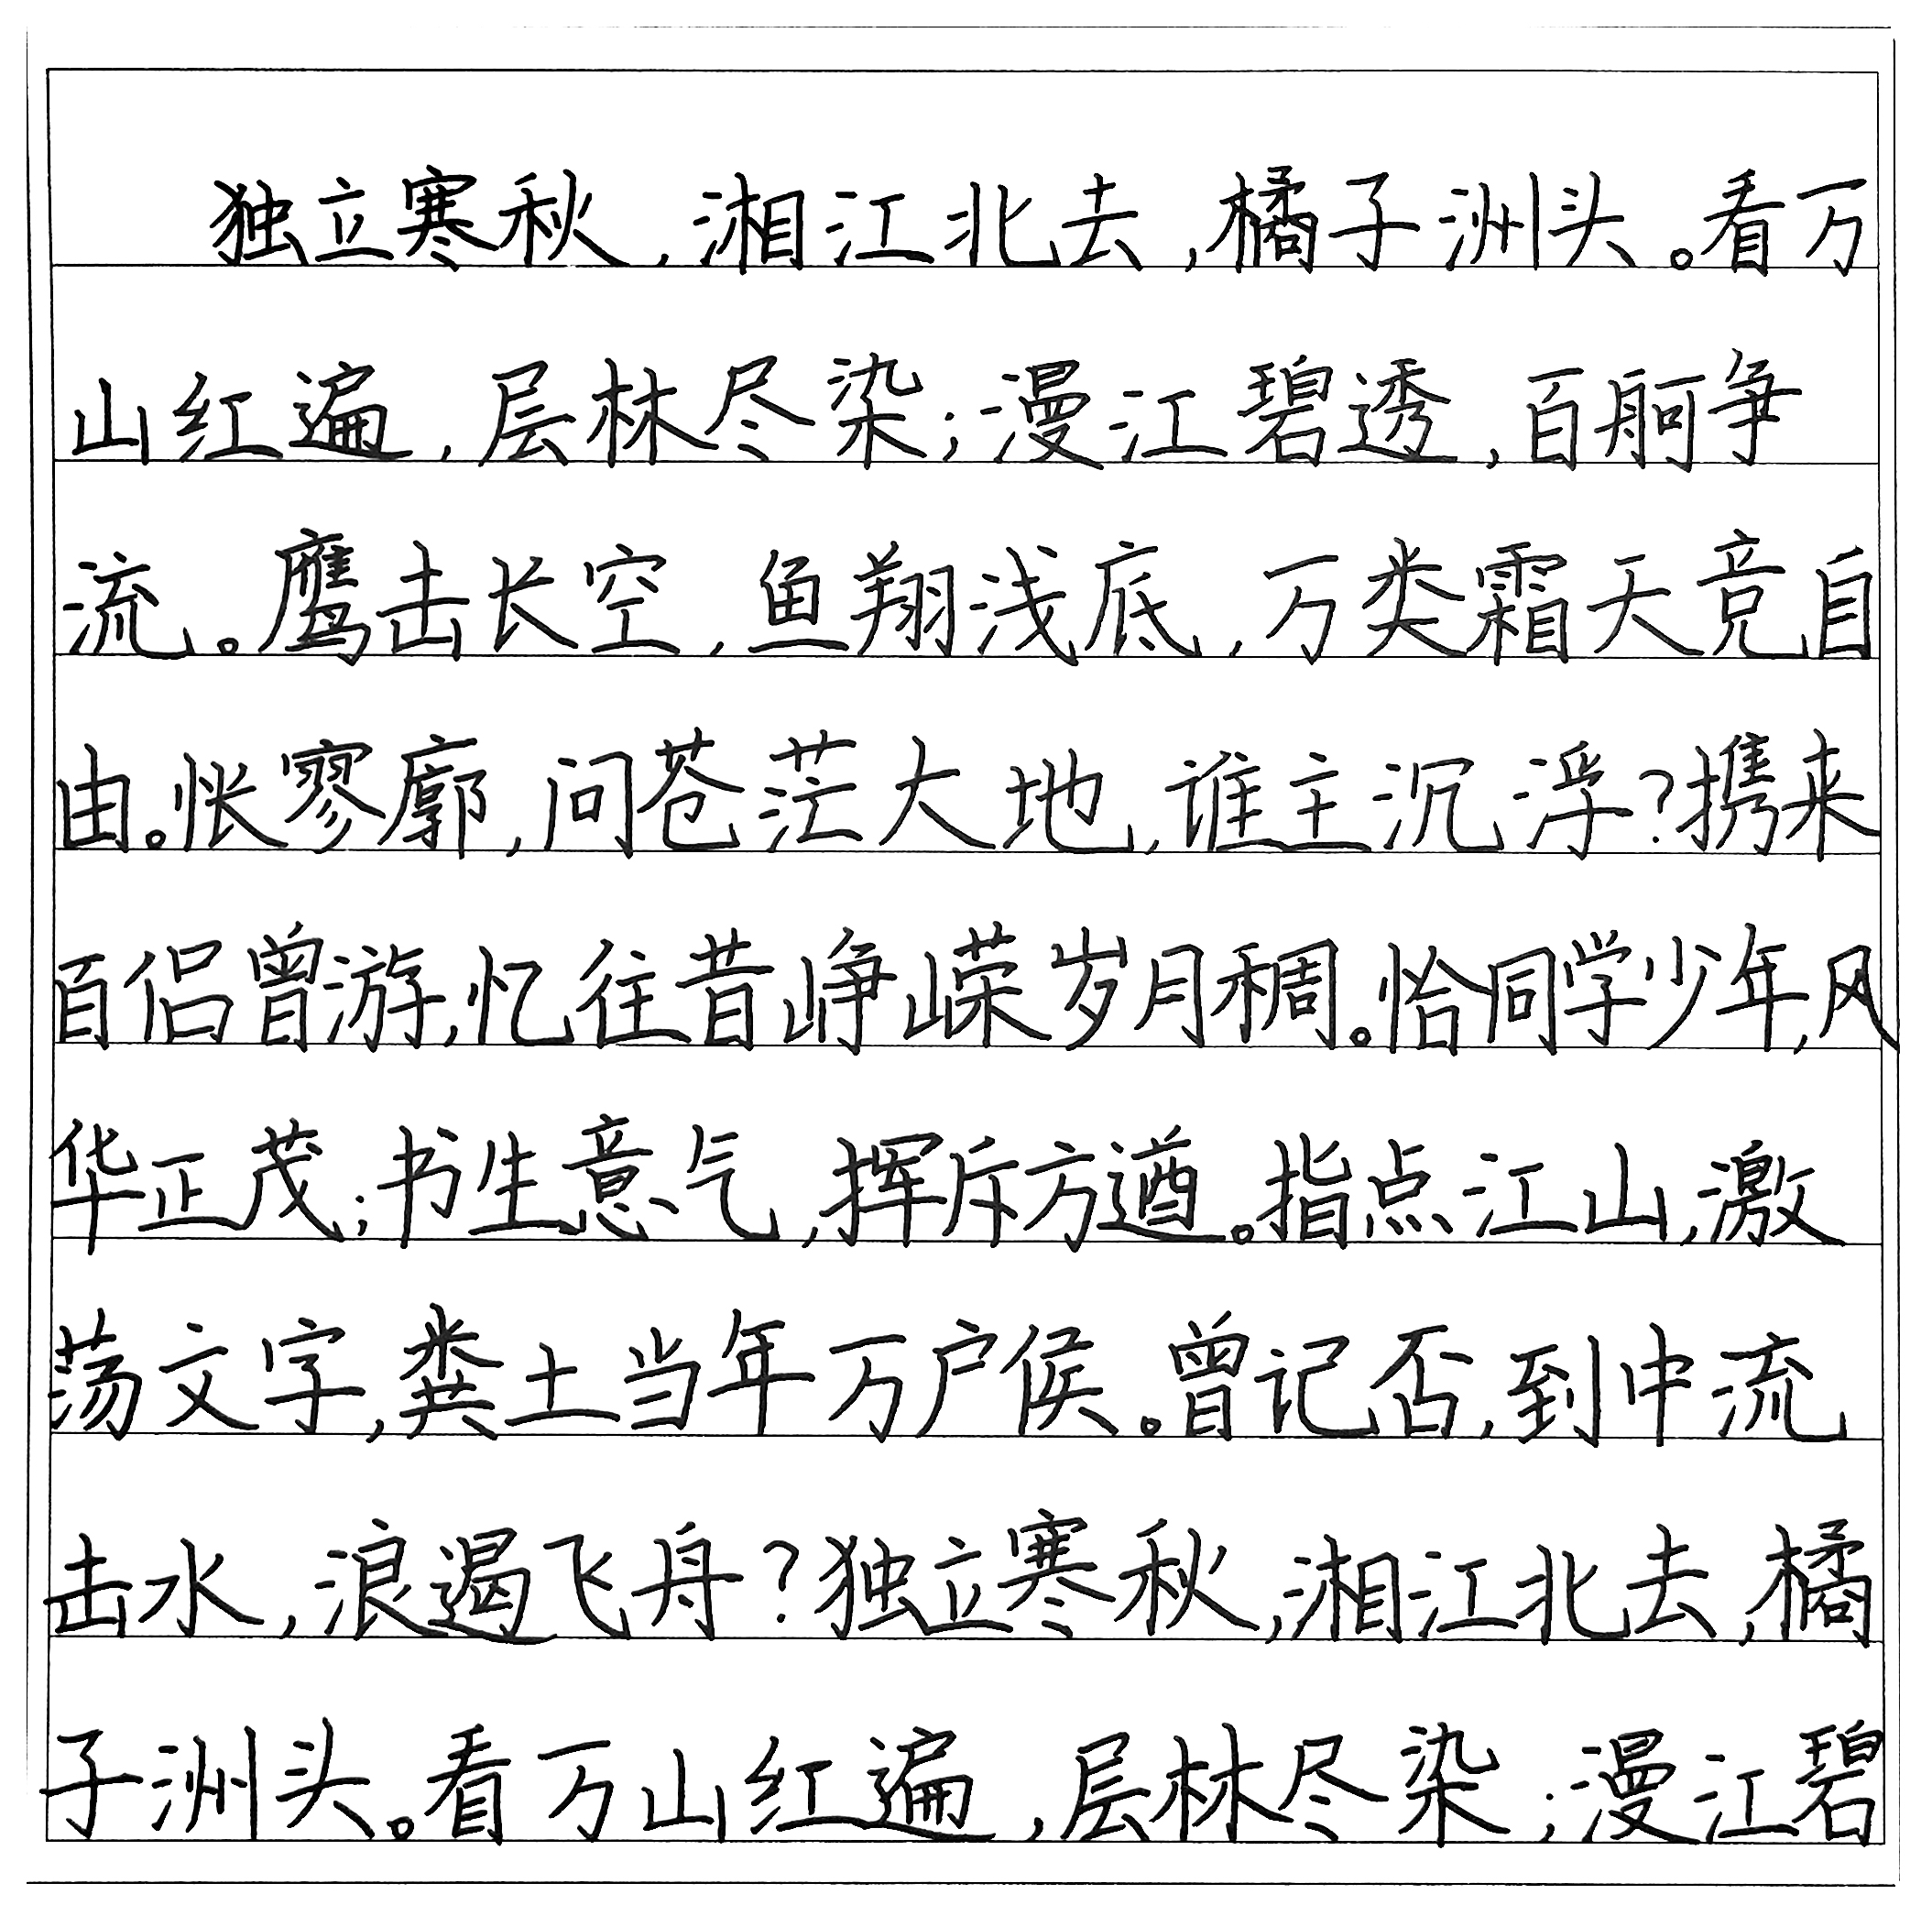 独立寒秋,湘江北去,橘子洲头。看万
山红遍,层林尽染;漫江碧透,百舸争
流。鹰击长空,鱼翔浅底,万类霜天竞自
由。怅寥廓,问苍茫大地,谁主沉浮?携来
百侣曾游,忆往昔峥嵘岁月稠。恰同学少年,风
华正茂;书生意气,挥斥方遒。指点江山,激
荡文字,粪土当年万户侯。曾记否,到中流
击水,浪遏飞舟?独立寒秋,湘江北去,橘
子洲头。看万山红遍,层林尽染;漫江碧